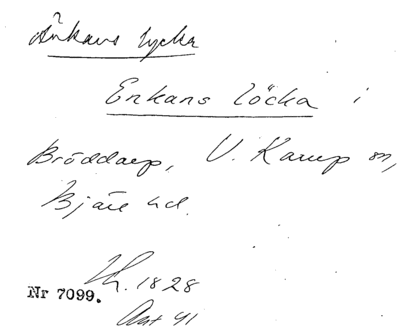 Änkans lycka
Enkans löcka i
Bröddarp, V. Karup sn,
Bjäre hd.
Lh. 1828
Nr 7099.
Akt 41